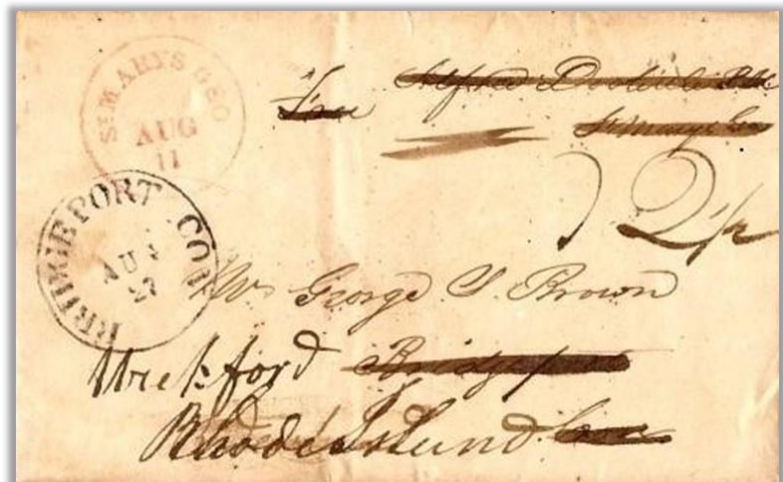 ST MARYS GEO
AUG
11
Free Alfred Doolittle P.M.
St Marys Geo
12 1/2
BRIDGEPORT CON
AUG
27
Mr George T. Brown
Wickford Bridgeport
Rhode Island Con